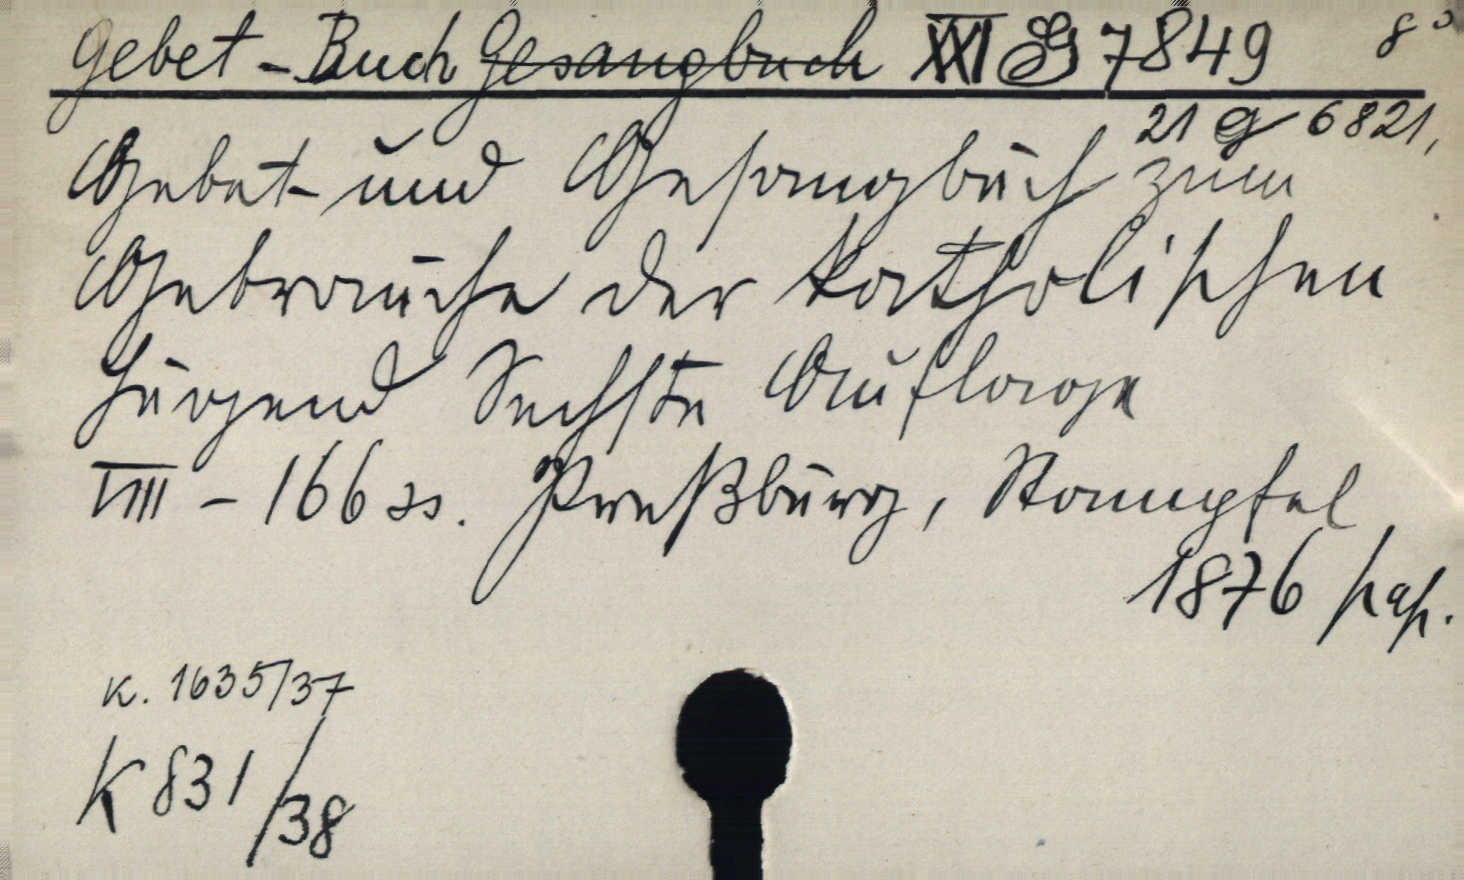 Gebet-Buch Gesangbuch XXI G 7849 8°
21 g 6821,
Gebet- und Gesangbuch zum
Gebrauche der katholischen
Jugend Sechste Auflage
VIII - 166 ss. Preßburg, Stampfel
1876 pap.
K. 1635/37
K 831/38